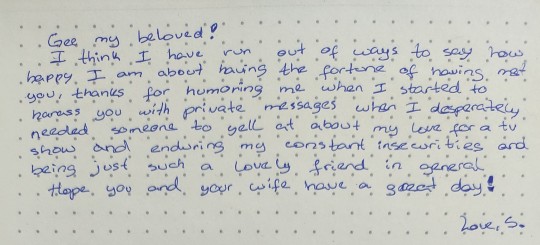 Gee my beloved!
I think I have run out of ways to say how
happy I am about having the fortune of having met
you, thanks for humoring me when I started to
harass you with private messages when I desperately
needed someone to yell at about my love for a tv
show and enduring my constant insecurities and
being just such a lovely friend in general
Hope you and your wife have a great day!
Love, S.